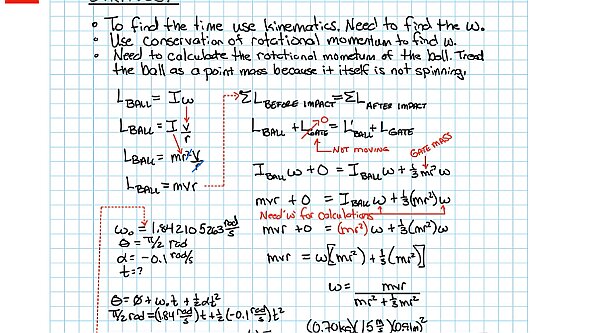 • To find the time use kinematics. Need to find the ω.
• Use conservation of rotational momentum to find ω.
• Need to calculate the rotational mometum of the ball. Treat
the ball as a point mass because it itself is not spinning.
L BALL = Iω
L BALL = I v/r
L BALL = mr² v/r
L BALL = mvr
ΣL BEFORE IMPACT = ΣL AFTER IMPACT
L BALL + L GATE = L' BALL + L GATE
0
NOT MOVING
GATE MASS
I BALL ω + 0 = I BALL ω + 1/3 mr² ω
mvr + 0 = I BALL ω + 1/3(mr²)ω
Need 'ω' for calculations
mvr + 0 = (mr²)ω + 1/3(mr²)ω
mvr = ω[(mr²) + 1/3(mr²)]
ω = mvr / mr² + 1/3mr²
ω₀ = 1.842105263 rad/s
θ = π/2 rad
α = -0.1 rad/s
t = ?
θ = ∅ + ω₀t + 1/2 αt²
π/2 rad = (1.84 rad/s)t + 1/2(-0.1 rad/s)t²
(0.70kg)(15 m/s)0.91m²